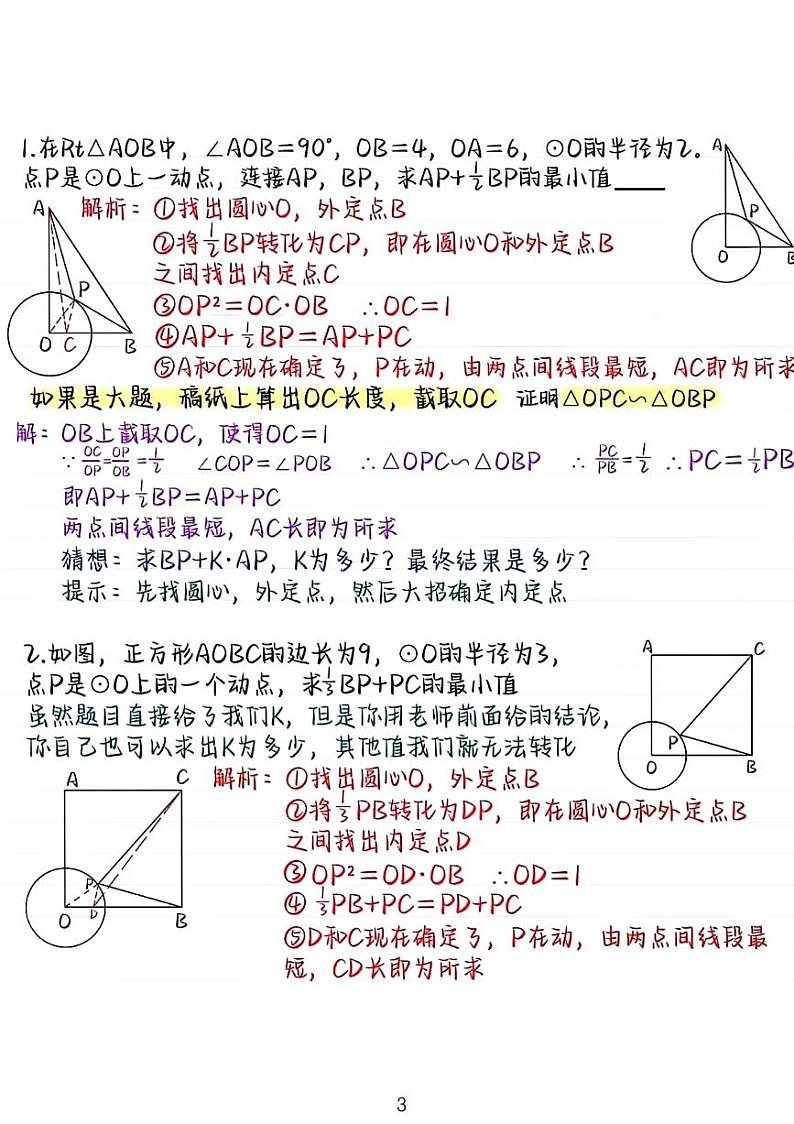 1.在Rt△AOB中，∠AOB=90°，OB=4，OA=6，⊙O的半径为2。
点P是⊙O上一动点，连接AP，BP，求AP+½BP的最小值____
A
P
O
B
解析：①找出圆心O，外定点B
②将½BP转化为CP，即在圆心O和外定点B
之间找出内定点C
③OP²=OC·OB ∴OC=1
④AP+½BP=AP+PC
⑤A和C现在确定了，P在动，由两点间线段最短，AC即为所求
A
P
O C B
如果是大题，稿纸上算出OC长度，截取OC 证明△OPC∽△OBP
解：OB上截取OC，使得OC=1
∵ OC/OP=OP/OB=½ ∠COP=∠POB ∴△OPC∽△OBP ∴ PC/PB=½ ∴PC=½PB
即AP+½BP=AP+PC
两点间线段最短，AC长即为所求
猜想：求BP+K·AP，K为多少？最终结果是多少？
提示：先找圆心，外定点，然后大招确定内定点
2.如图，正方形AOBC的边长为9，⊙O的半径为3，
点P是⊙O上的一个动点，求⅓BP+PC的最小值
虽然题目直接给了我们K，但是你用老师前面给的结论，
你自己也可以求出K为多少，其他值我们就无法转化
A C
P
O B
A C
P
O D B
解析：①找出圆心O，外定点B
②将⅓PB转化为DP，即在圆心O和外定点B
之间找出内定点D
③OP²=OD·OB ∴OD=1
④⅓PB+PC=PD+PC
⑤D和C现在确定了，P在动，由两点间线段最
短，CD长即为所求
3